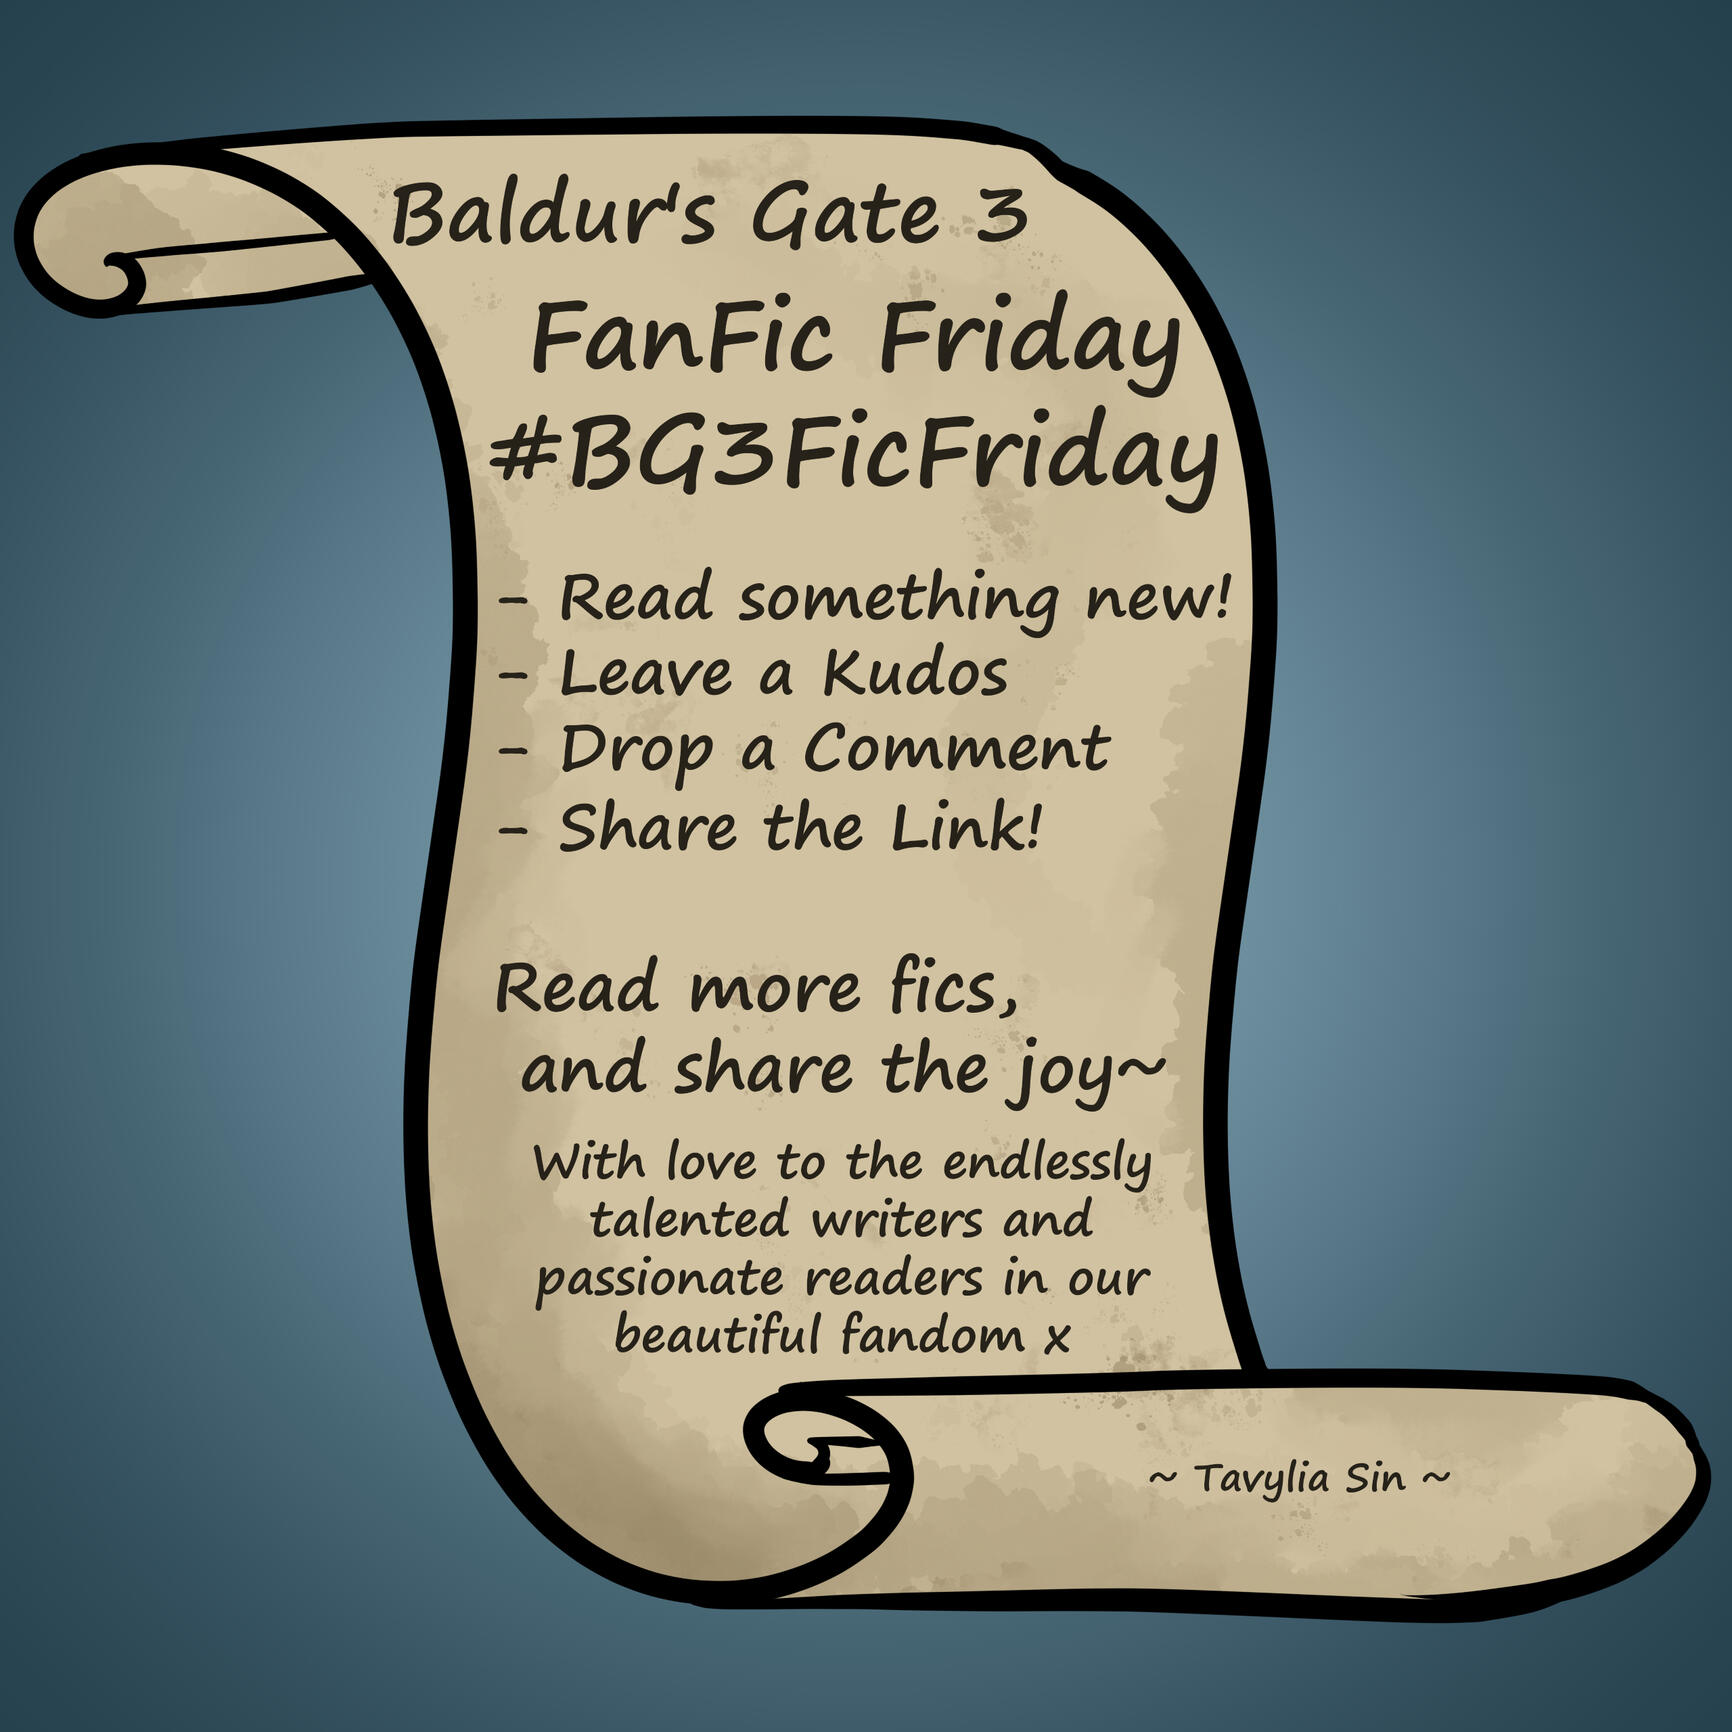 Baldur's Gate 3
FanFic Friday
#BG3FicFriday
- Read something new!
- Leave a Kudos
- Drop a Comment
- Share the Link!
Read more fics,
and share the joy~
With love to the endlessly
talented writers and
passionate readers in our
beautiful fandom x
~ Tavylia Sin ~